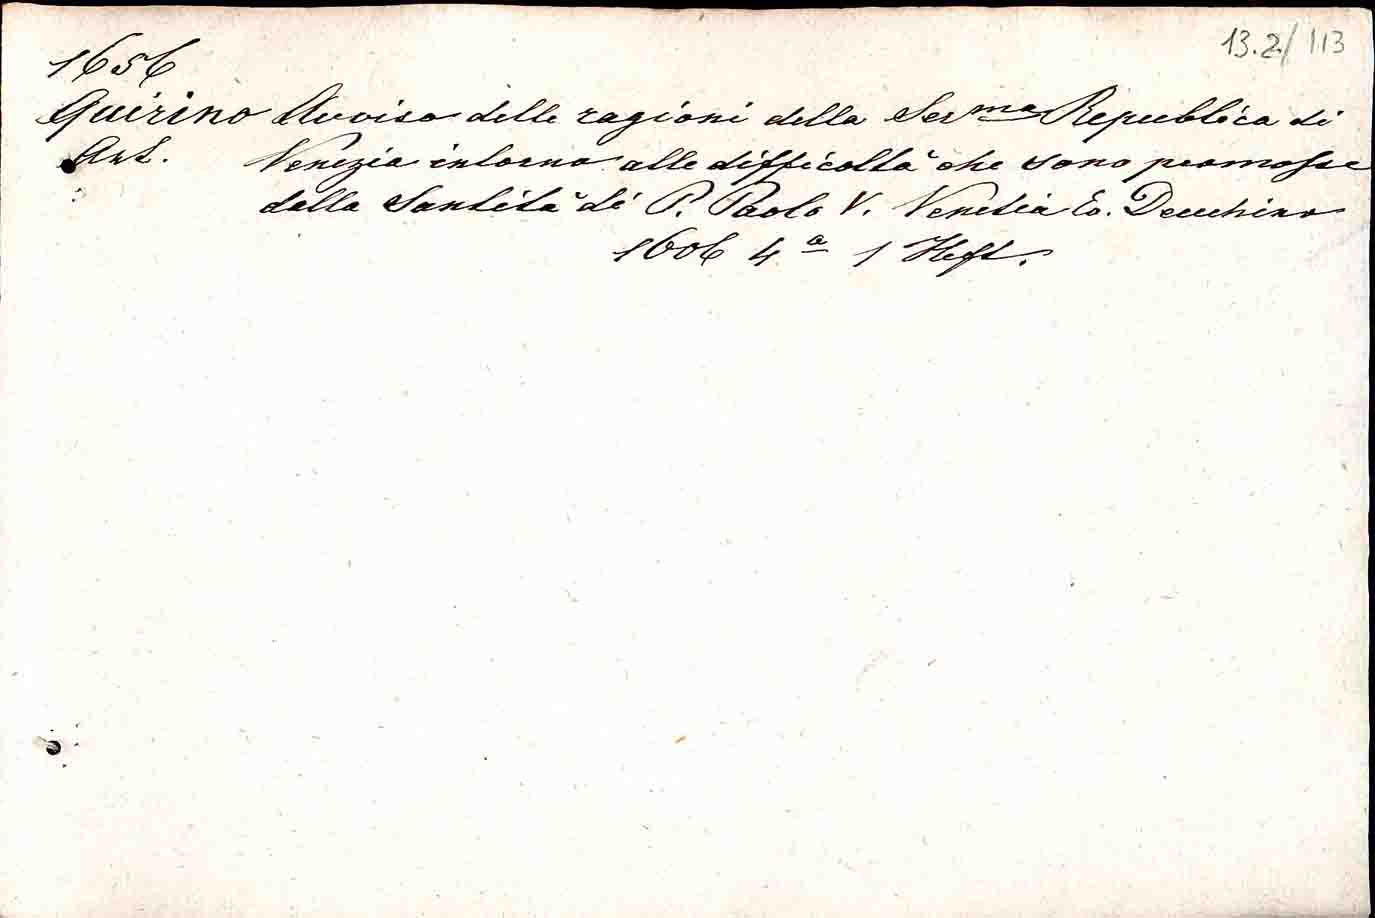 13.2/113
1656
Quirino Avviso delle ragioni della Ser^ma Republica di
Ant. Venezia intorno alle difficoltà che sono promosse
dalla Santità di P. Paolo V. Venetia Eo. Deuchino
1606 4^a 1 Heft.